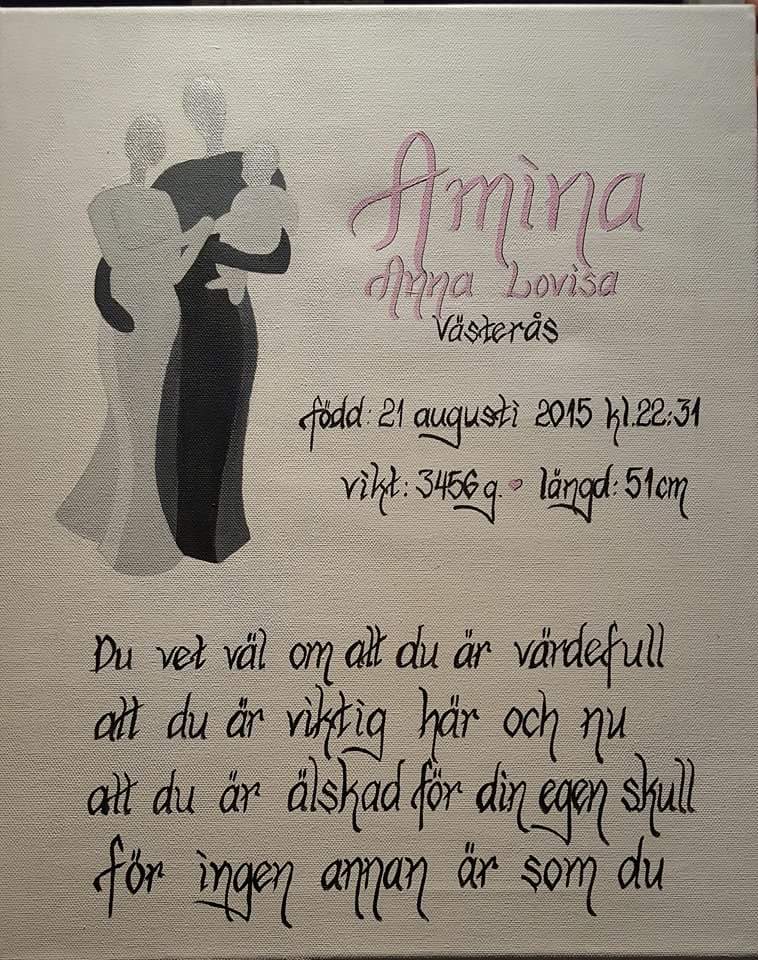 Amina
Anna Lovisa
Västerås
född: 21 augusti 2015 kl.22:31
vikt: 3456g. längd: 51cm
Du vet väl om att du är värdefull
att du är viktig här och nu
att du är älskad för din egen skull
för ingen annan är som du